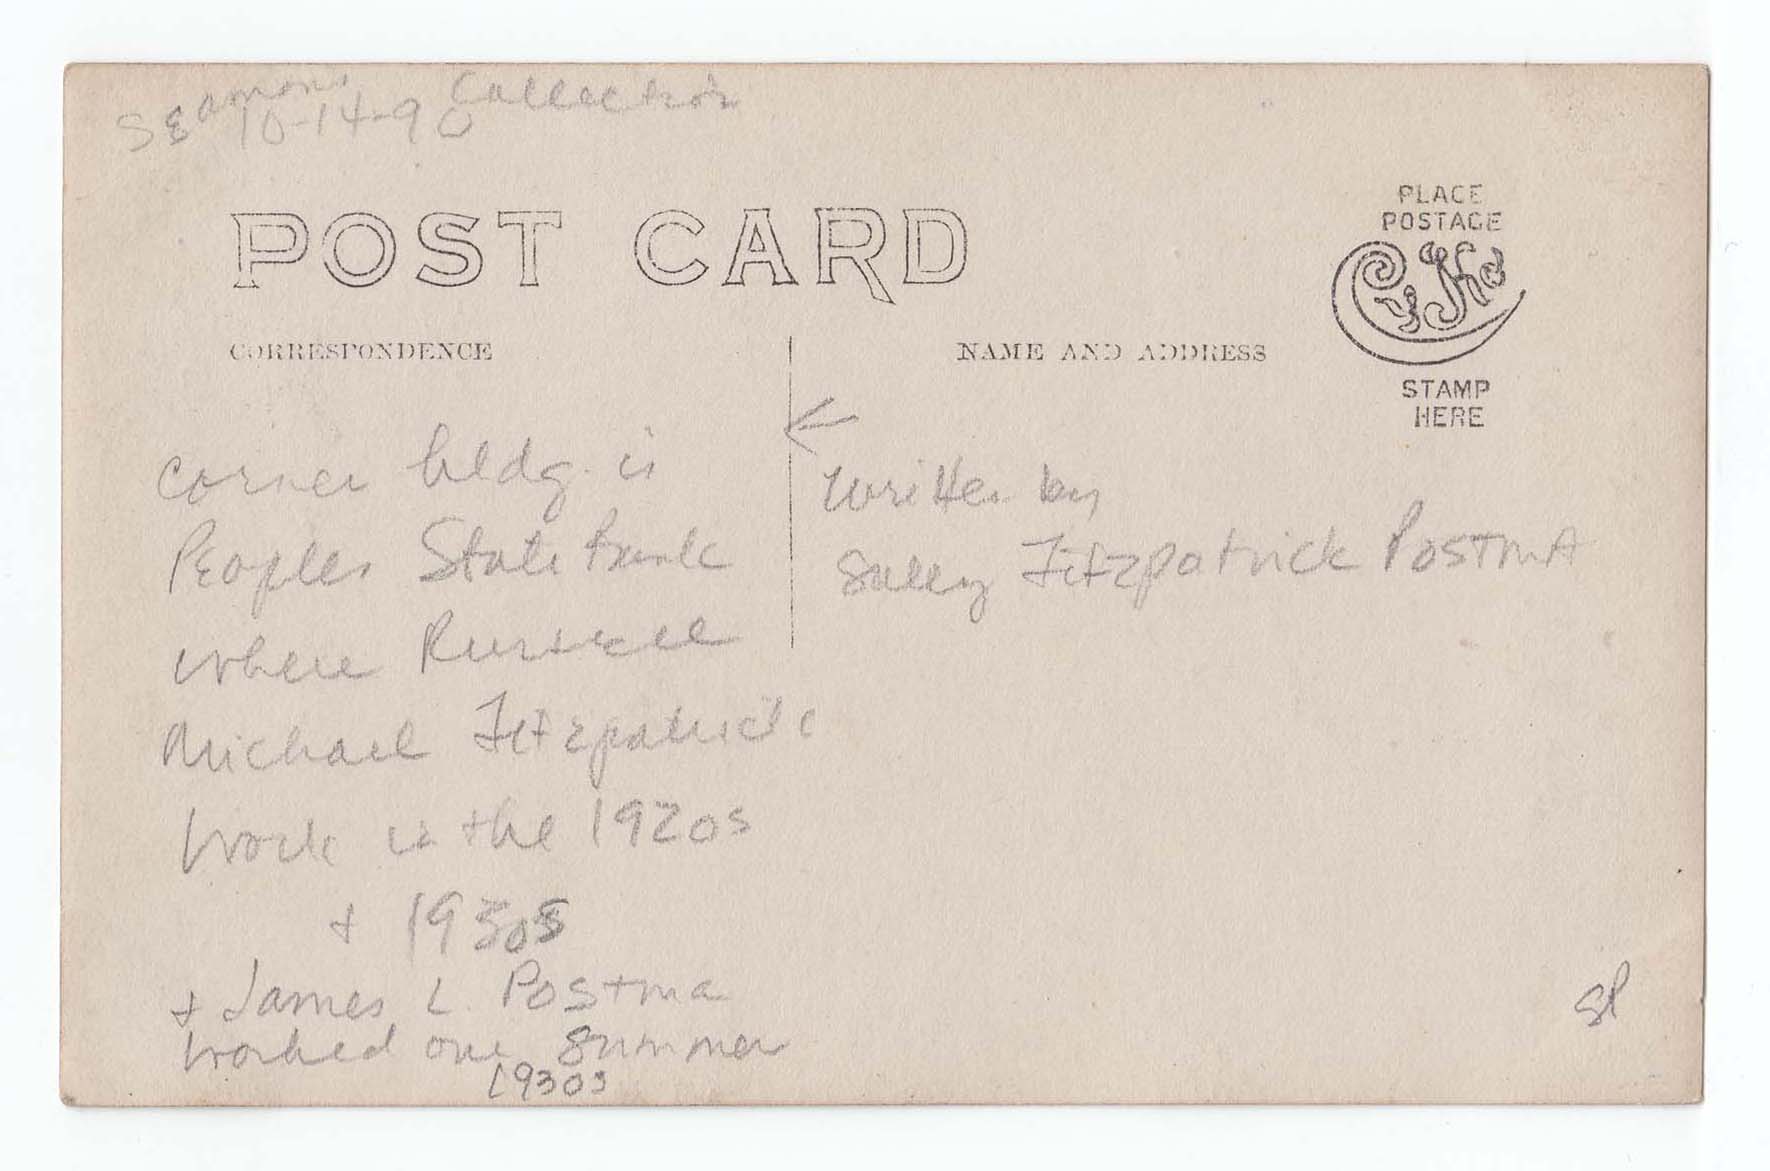 Seamons Collection
10-14-90
POST CARD
PLACE
POSTAGE
CyKo
STAMP
HERE
CORRESPONDENCE
NAME AND ADDRESS
corner bldg. is
Peoples State Bank
where Russell
Michael Fitzpatrick
work in the 1920s
+ 1930s
+ James L. Postma
worked one summer
1930s
written by
Sally Fitzpatrick Postma
SP